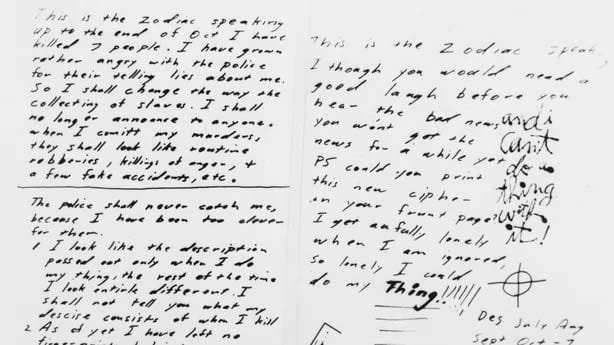 This is the Zodiac speaking
up to the end of Oct I have
killed 7 people. I have grown
rather angry with the police
for their telling lies about me.
So I shall change the way the
collecting of slaves. I shall
no longer announce to anyone.
when I comitt my murders,
they shall look like routine
robberies, killings of anger, +
a few fake accidents, etc.
The police shall never catch me,
because I have been too clever
for them.
1 I look like the description
passed out only when I do
my thing, the rest of the time
I look entirle different. I
shall not tell you what my
descise consists of when I kill
2 As of yet I have left no
This is the Zodiac speak
I though you would need a
good laugh before you
hear the bad news
you won't get the
news for a while yet
PS could you print
this new cipher
in your frunt page?
I get aufully lonely
when I am ignored,
So lonely I could
do my Thing!!!!!!
and i
can't
do a
thing
with
it!
Des July Aug
Sept Oct = 7